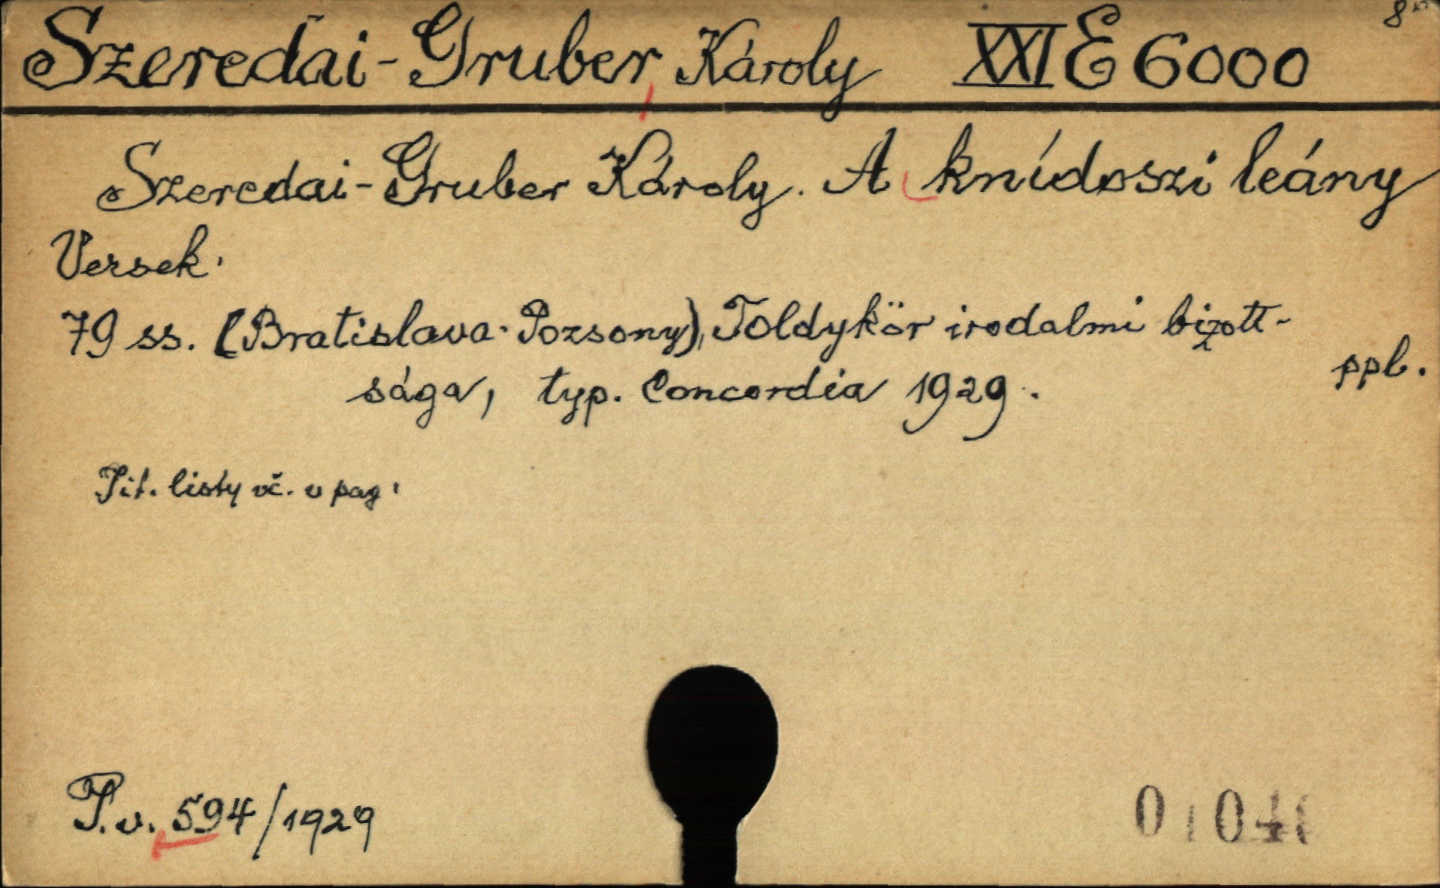 8°
Szeredai-Gruber, Károly XXI E 6000
Szeredai-Gruber Károly. A knídoszi leány
Versek.
79 ss. (Bratislava-Pozsony), Toldykör irodalmi bizott-
sága, typ. Concordia 1929.
ppb.
Tit. listy vč. v pag.
P.v. 594/1929